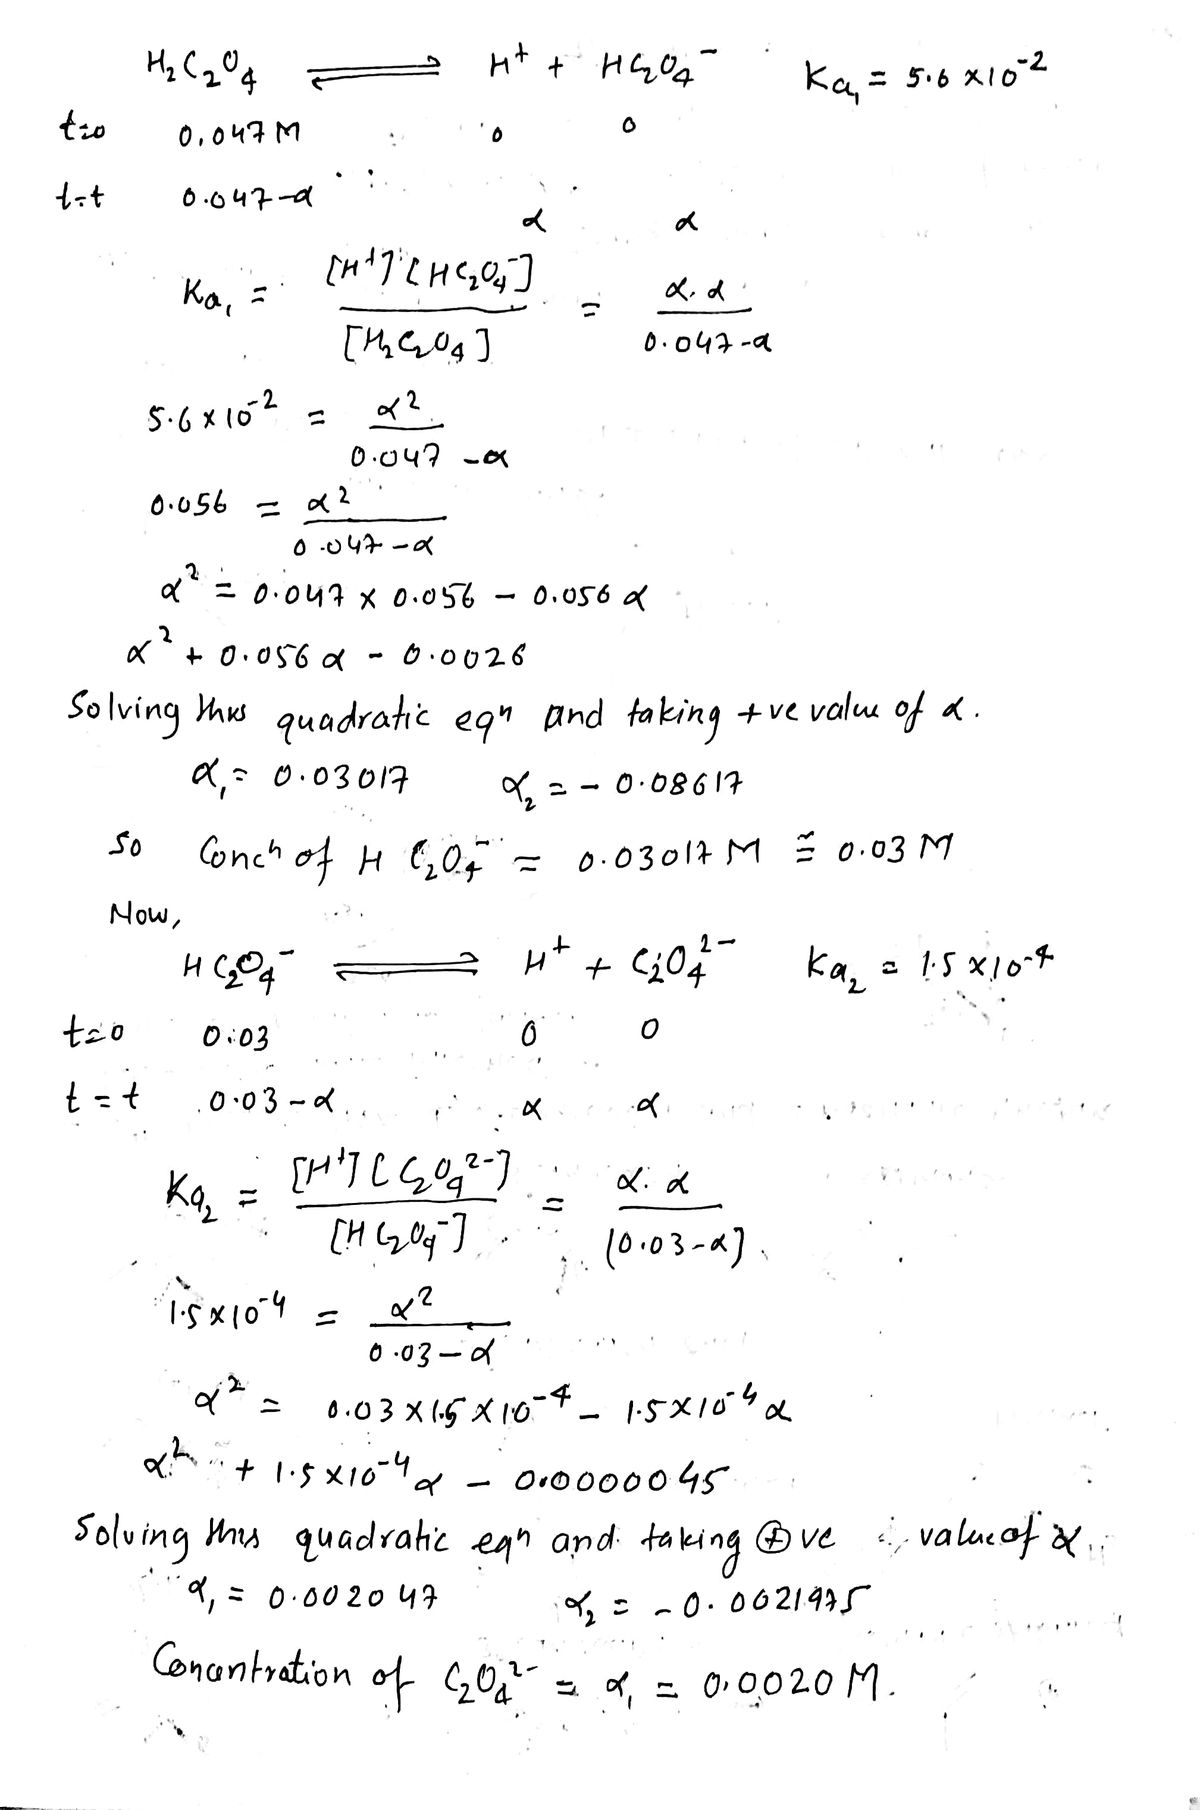 H₂C₂O₄ ⇌ H⁺ + HC₂O₄⁻ Ka₁ = 5.6 × 10⁻²
t=0 0.047 M 0 0
t=t 0.047-α α α
Ka₁ = [H⁺][HC₂O₄⁻] / [H₂C₂O₄] = α.α / 0.047-α
5.6 × 10⁻² = α² / 0.047 - α
0.056 = α² / 0.047 - α
α² = 0.047 × 0.056 - 0.056 α
α² + 0.056 α - 0.0026
Solving this quadratic eqⁿ and taking +ve value of α.
α₁ = 0.03017 α₂ = - 0.08617
So Concⁿ of HC₂O₄⁻ = 0.03017 M ≅ 0.03 M
Now,
HC₂O₄⁻ ⇌ H⁺ + C₂O₄²⁻ Ka₂ = 1.5 × 10⁻⁴
t=0 0.03 0 0
t = t 0.03 - α α α
Ka₂ = [H⁺][C₂O₄²⁻] / [HC₂O₄⁻] = α.α / (0.03-α)
1.5 × 10⁻⁴ = α² / 0.03 - α
α² = 0.03 × 1.5 × 10⁻⁴ - 1.5 × 10⁻⁴ α
α² + 1.5 × 10⁻⁴ α - 0.0000045
Solving this quadratic eqⁿ and taking ⊕ve value of α.
α₁ = 0.002047 α₂ = - 0.0021975
Concentration of C₂O₄²⁻ = α₁ = 0.0020 M.